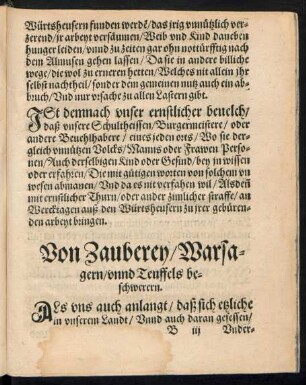 Würtsheusern funden werdē/ das jrig vnnützlich ver-
zerend/ jr arbeyt versäumen/ Weib vnd Kind daneben
hunger leiden/ vnnd zu zeiten gar ohn notturfftig nach
dem Allmusen gehen lassen/ Da sie in andere billiche
wege/ die wol zu erneren hetten/ Welchs nit allein jhr
selbst nachtheil/ sonder dem gemeinen nutz auch ein ab-
bruch/ Vnd nur vrsache zu allen Lastern gibt.
ISt demnach vnser ernstlicher beuelch/
daß vnsere Schultheissen/ Burgermeistere/ oder
andere Beuelhhabere/ eines jeden orts/ Wo sie der-
gleich vnnützen Volcks/ Manns oder Frawen Perso-
nen/ Auch derselbigen Kind oder Gesind/ bey in wissen
oder erfahren/ Die mit gütigen worten von solchem vn
wesen abmanen/ Vnd da es nit verfahen wil/ Alsdeñ
mit ernstlicher Thurn/ oder ander zimlicher straffe/ an
Wercktagen auß den Würtsheusern zu jrer gebüren-
den arbeyt bringen.
Von Zauberey/ Warsa-
gern/ vnnd Teuffels be-
schwerern.
ALs vns auch anlangt/ daß sich etzliche
in vnserem Landt/ Vnnd auch daran gesessen/
B iij Vnder-